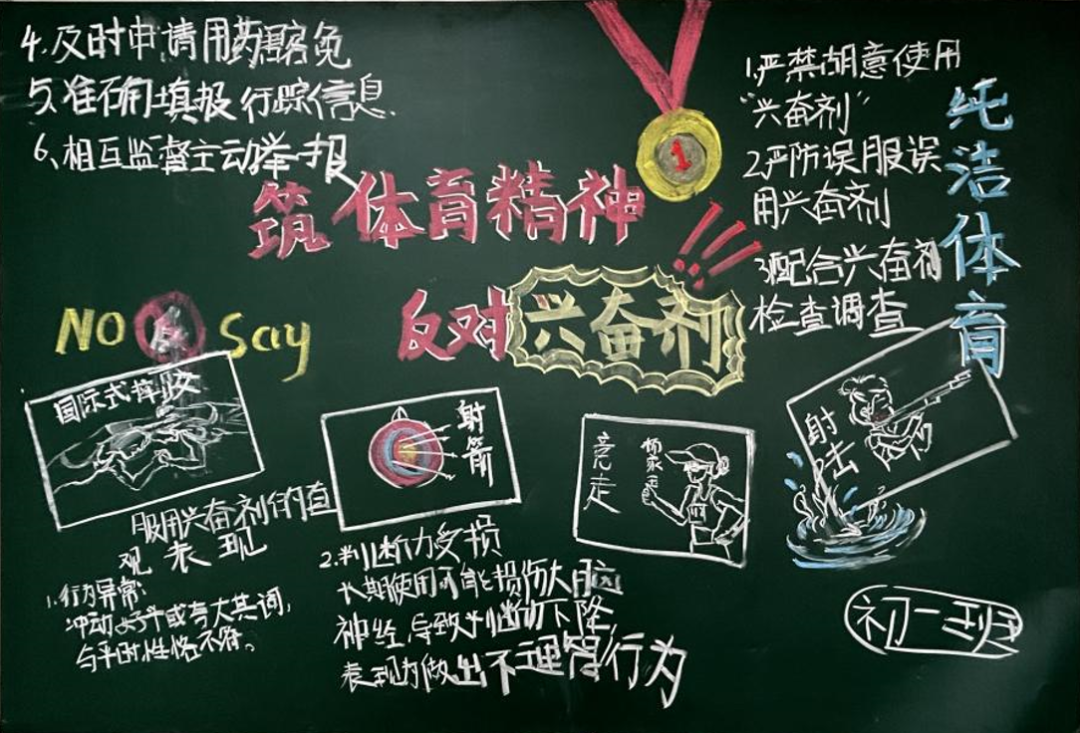 筑体育精神
反对兴奋剂
!!!
1
纯洁体育
1.严禁胡意使用
“兴奋剂”
2.严防误服误
用兴奋剂
3.配合兴奋剂
检查调查
4.及时申请用药豁免
5.准确填报行踪信息.
6、相互监督主动举报
NO
Say
国际式摔跤
射箭
竞走
杨家玉
射击
服用兴奋剂的直
观表现
1.行为异常:
冲动好斗或夸大其词,
与平时性格不符。
2.判断力受损
长期使用可能损伤大脑
神经,导致判断力下降,
表现为做出不理智行为
初一班